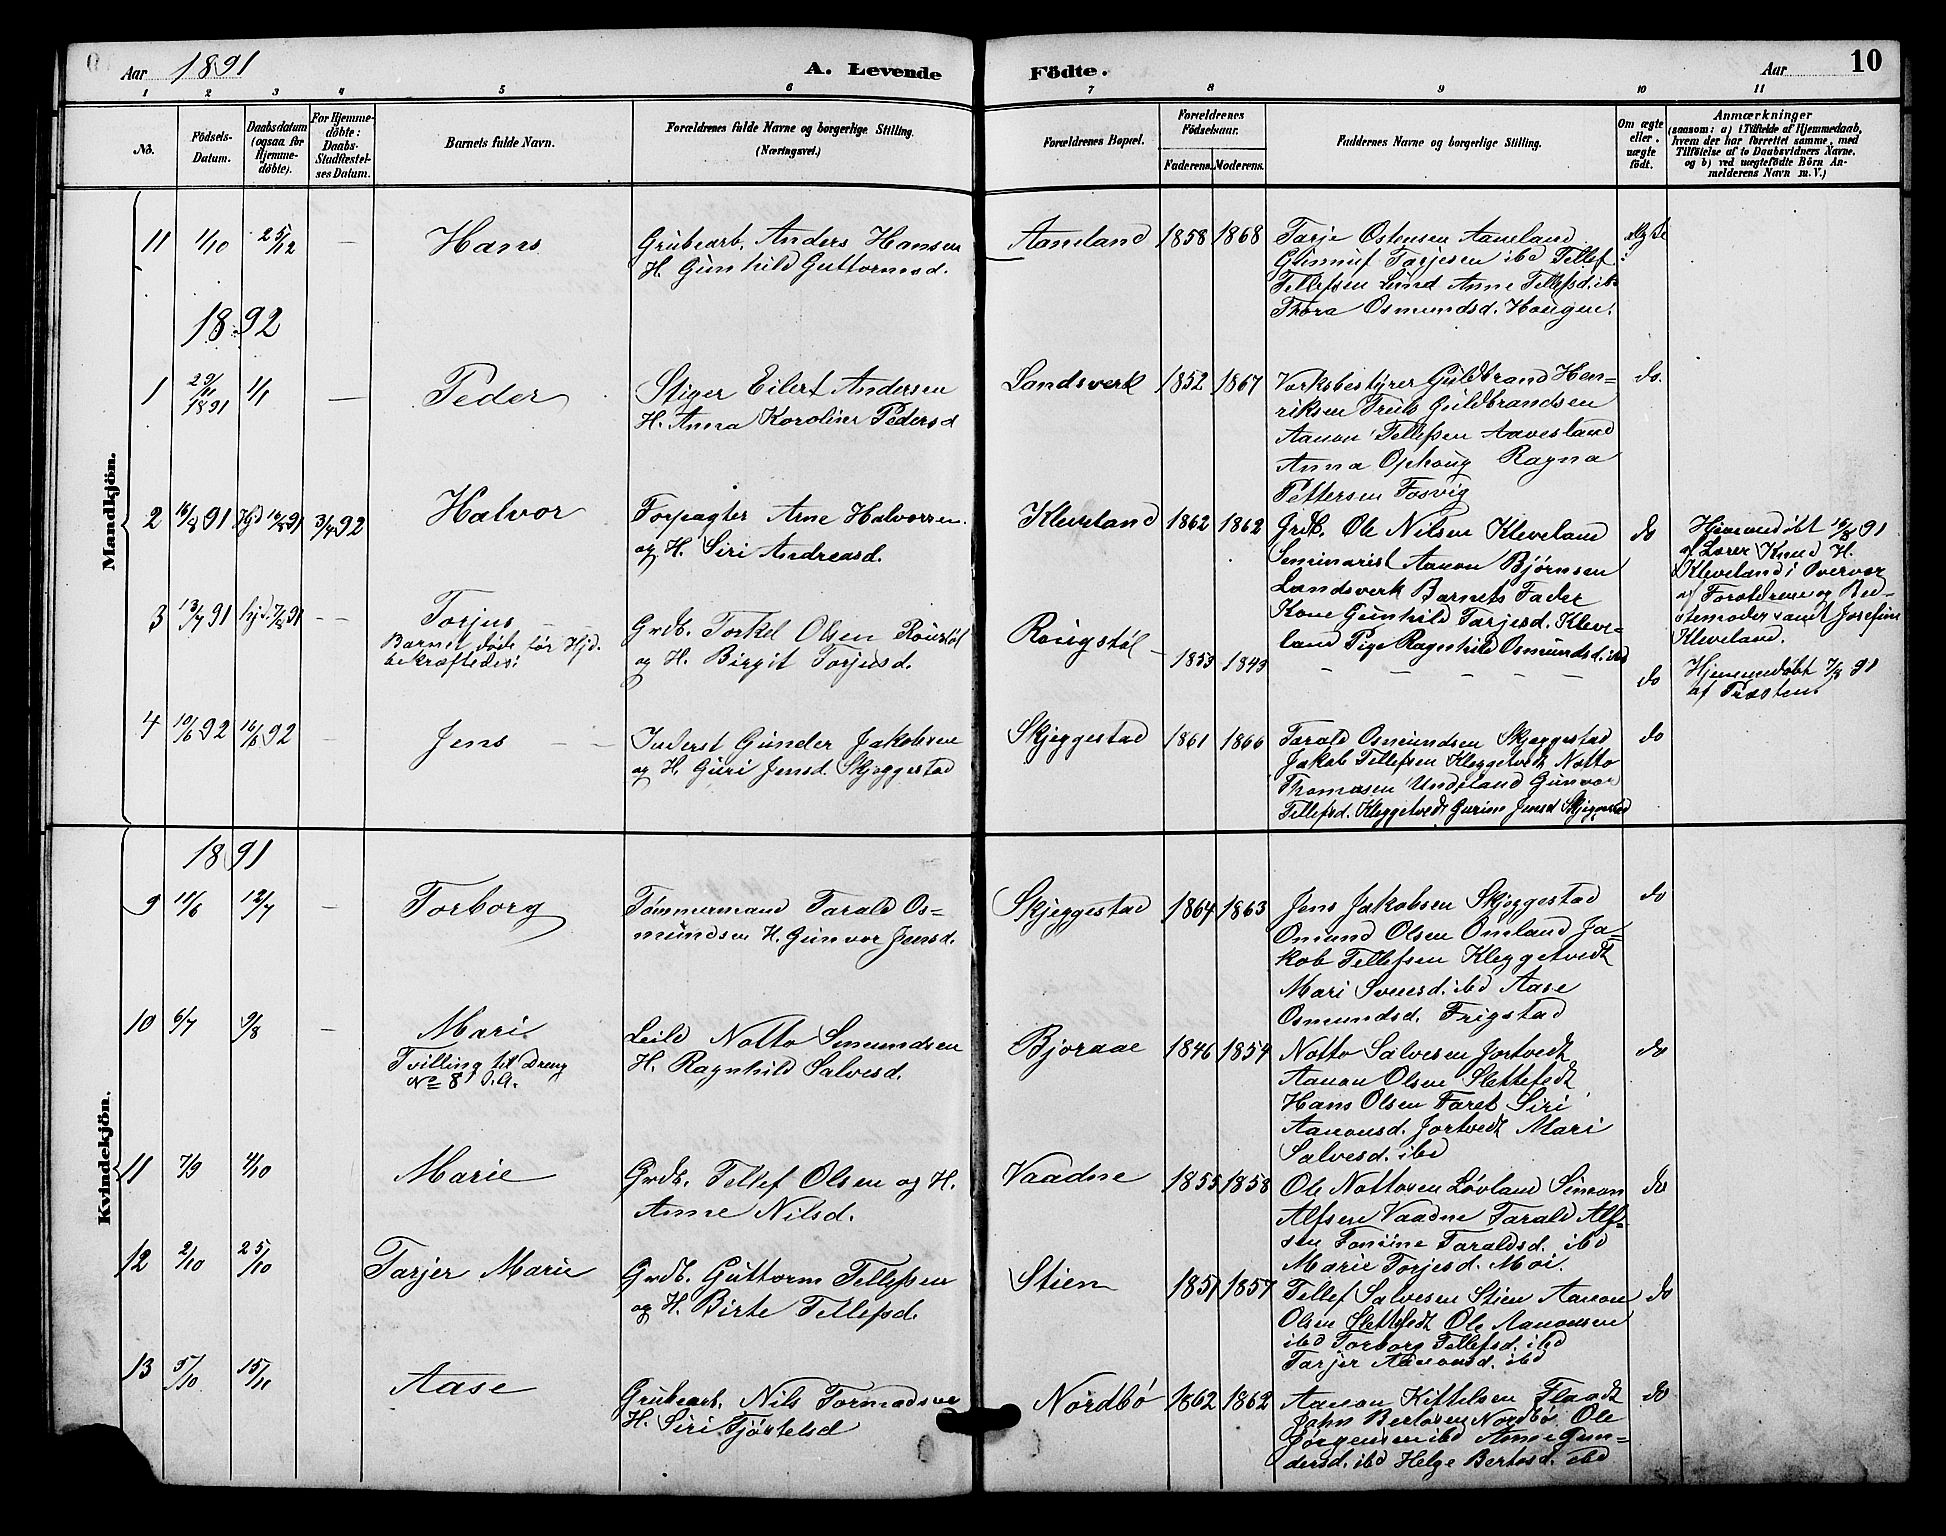 Aar 1891
A. Levende Födte.
Aar
10
1 2 3 4 5 6 7 8 9 10 11
No.
Födsels-Datum.
Daabsdatum (ogsaa for Hjemmedöbte).
For Hjemmedöbte: Daabs-Stadfæstelses Datum.
Barnets fulde Navn.
Forældrenes fulde Navne og borgerlige Stilling.
(Næringsvei.)
Forældrenes Bopæl.
Forældrenes Födselsaar.
Faderens. Moderens.
Faddernes Navne og borgerlige Stilling.
Om ægte eller uægte födt.
Anmærkninger
(saasom: a) i Tilfælde af Hjemmedaab, hvem der har forrettet samme, med Tilföielse af to Daabsvidners Navne, og b) ved uægtefödte Börn Anmelderens Navn m. V.)
Mandkjön.
11 1/10 25/12 — Hans
Grubearb. Anders Hansen
H. Gunhild Guttormsd.
Aamland 1858 1868
Tarje Ostensen Aamland
Gunnuf Tarjesen ibd Tellef
Tellefsen Lund Anne Tellefsd. ib.
Thora Osmundsd. Haugen.
ægte
1892
1 29/11 1891 1/1 — Peder
Stiger Eilert Andersen
H. Anna Karoline Pedersd
Landsverk 1852 1867
Værksbestyrer Guldbrand Hen=
riksen Truls Guldbrandsen
Aanon Tellefsen Aavesland
Anna Ophoug Ragna
Pettersen Fosvig
do.
2 16/8 91 Hjd 16/8 91 3/4 92 Halvor
Forpagter Arne Halvorsen
og H. Siri Andreasd.
Kleveland 1862 1862
Grdb. Ole Nilsen Kleveland
Seminarist Aanon Bjørnsen
Landsverk Barnets Fader
Kone Gunhild Tarjesd. Kleve-
land Pige Ragnhild Osmundsd. ibd
do
Hjemmedöbt 16/8 91
af Lærer Knud H.
Kleveland i Overvær
af Forældrene og Bed-
stemoder samt Josefine
Kleveland.
3 13/7 91 hjd. 7/8 91 — — Torjus —
Barnet døde før Hjd.
bekræftedes.
Grdb. Torkel Olsen Rougstøl
og H. Birgit Torjusd.
Rougstøl — 1853 1849
— — — — —
do
Hjemmedøbt 7/8 91
af Præsten
4 10/6 92 16/6 92 — Jens — —
Inderst Gunder Jakobsen
og H. Guri Jensd. Skjeggestad
Skjeggestad 1861 1866
Tarald Osmundsen Skjeggestad
Jakob Tellefsen Kleggetvedt Notto
Thomasen Undeland Gunvor
Tellefsd. Kleggetvedt Gurine Jensd Skjeggestad
do
Kvindekjön.
1891
9 10/6 12/7 — Torborg
Tømmermand Tarald Os=
mundsen H. Gunvor Jensd.
Skjeggestad 1864 1863
Jens Jakobsen Skjeggestad
Omund Olsen Omland Ja=
kob Tellefsen Kleggetvedt
Mari Svensd. ibd Aase
Osmundsd. Frigstad
do
10 6/7 9/8 — Mari
Tvilling til Dreng
No 8 S. A.
Leild Notto Smundsen
H. Ragnhild Salvesd.
Bjoraae 1846 1854
Notto Salvesen Jortvedt
Aanon Olsen Slettefedt
Hans Olsen Faret Siri
Aanonsd. Jortvedt Mari
Salvesd. ibd
do
11 7/9 4/10 Marie
Grdb. Tellef Olsen og H.
Anne Nilsd.
Vaadne 1855 1858
Ole Nottosen Løvland Simon
Alfsen Vaadne Tarald Alf-
sen Tonine Taraldsd. ibd
Marie Torjesd. Moi.
do
12 2/10 25/10 Tarjer Marie
Grdb. Guttorm Tellefsen
og H. Birte Tellefsd.
Stien 1851 1857
Tellef Salvesen Stien Aanon
Olsen Slettefedt Ole Aanonsen
ibd Torborg Tellefsd. ibd
Tarjer Aanonsd. ibd
do
13 5/10 15/11 Aase
Grubearb. Nils Tormodsen
H. Siri Kjørtelsd
Nordbø 1862 1862
Aanon Kittelsen Flaadt
John Bertosen Nordbø Ole
Jørgensen ibd Anne Gun=
dersd. ibd Helge Bertosd. ibd
do